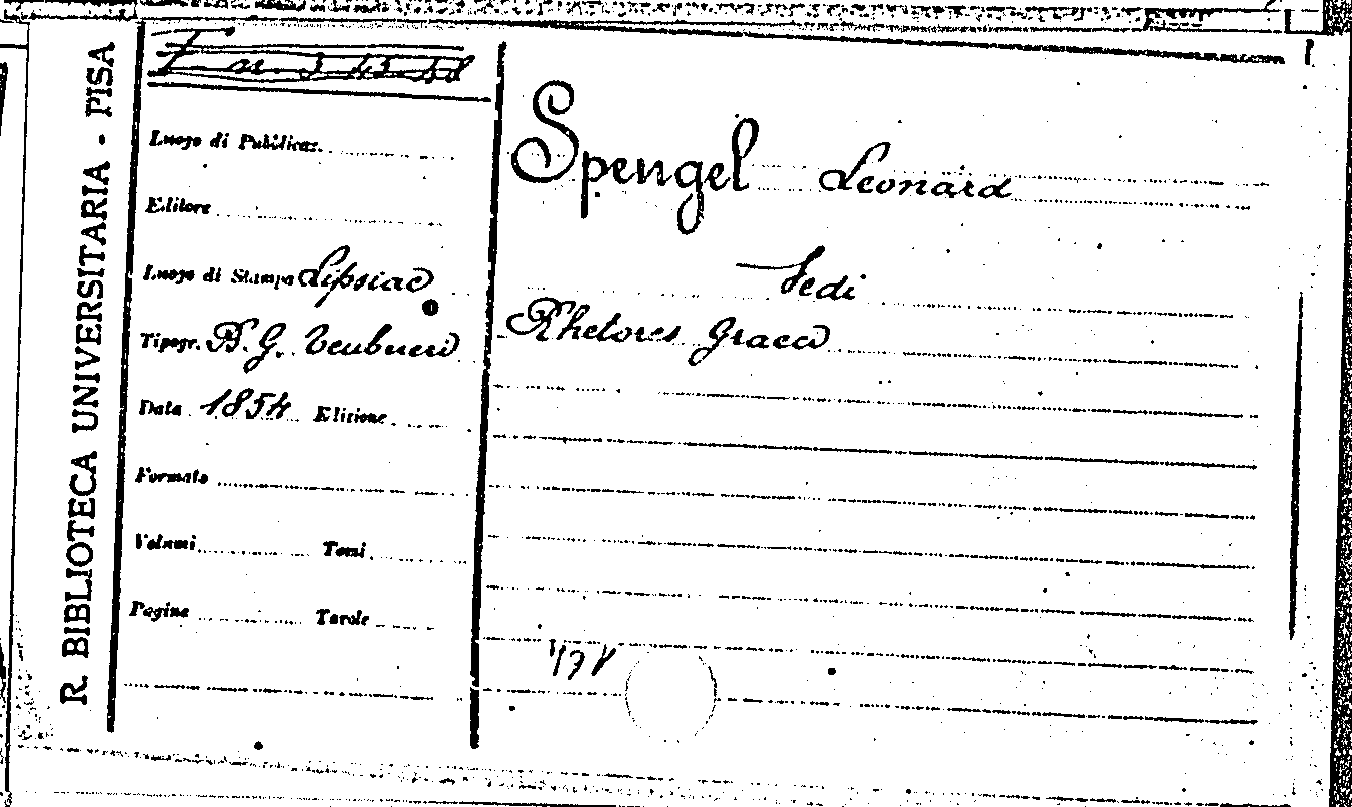 R. BIBLIOTECA UNIVERSITARIA - PISA
Luogo di Pubblicaz.
Editore
Luogo di Stampa Lipsiae
Tipogr. B. G. Teubneri
Data 1854 Edizione
Formato
Volumi Tomi
Pagine Tavole
Spengel Leonard
Vedi
Rhetores Graeci